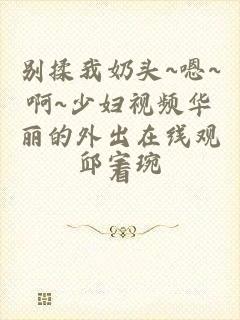 别揉我奶头~嗯~
啊~少妇视频华
丽的外出在线观
看
邱宝琬